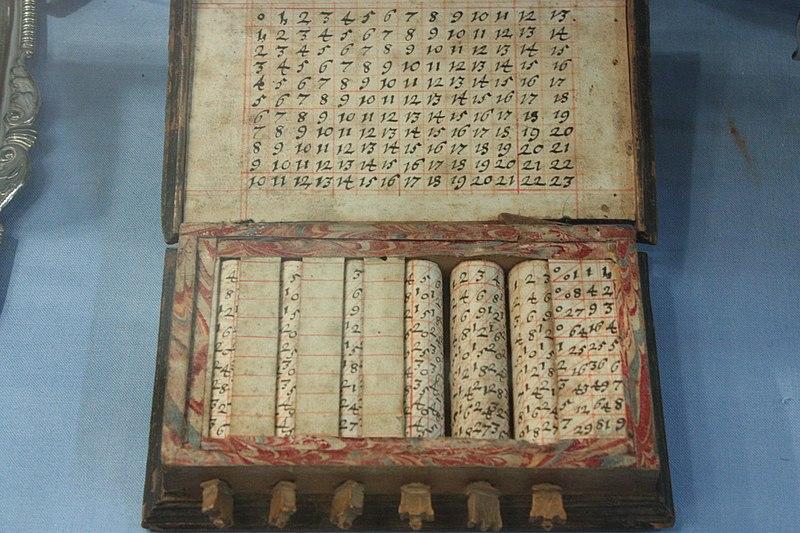 0 1 2 3 4 5 6 7 8 9 10 11 12 13
1 2 3 4 5 6 7 8 9 10 11 12 13 14
2 3 4 5 6 7 8 9 10 11 12 13 14 15
3 4 5 6 7 8 9 10 11 12 13 14 15 16
4 5 6 7 8 9 10 11 12 13 14 15 16 17
5 6 7 8 9 10 11 12 13 14 15 16 17 18
6 7 8 9 10 11 12 13 14 15 16 17 18 19
7 8 9 10 11 12 13 14 15 16 17 18 19 20
8 9 10 11 12 13 14 15 16 17 18 19 20 21
9 10 11 12 13 14 15 16 17 18 19 20 21 22
10 11 12 13 14 15 16 17 18 19 20 21 22 23
4 5 3 4 5 1 2 3 4 1 2 3 0 01 1 1
8 10 6 0 08 4 2
12 15 9 0 27 9 3
16 20 12 0 64 16 4
20 25 15 1 25 25 5
24 30 18 2 16 36 6
28 35 21 3 43 49 7
32 40 24 5 12 64 8
36 45 27 7 29 81 9